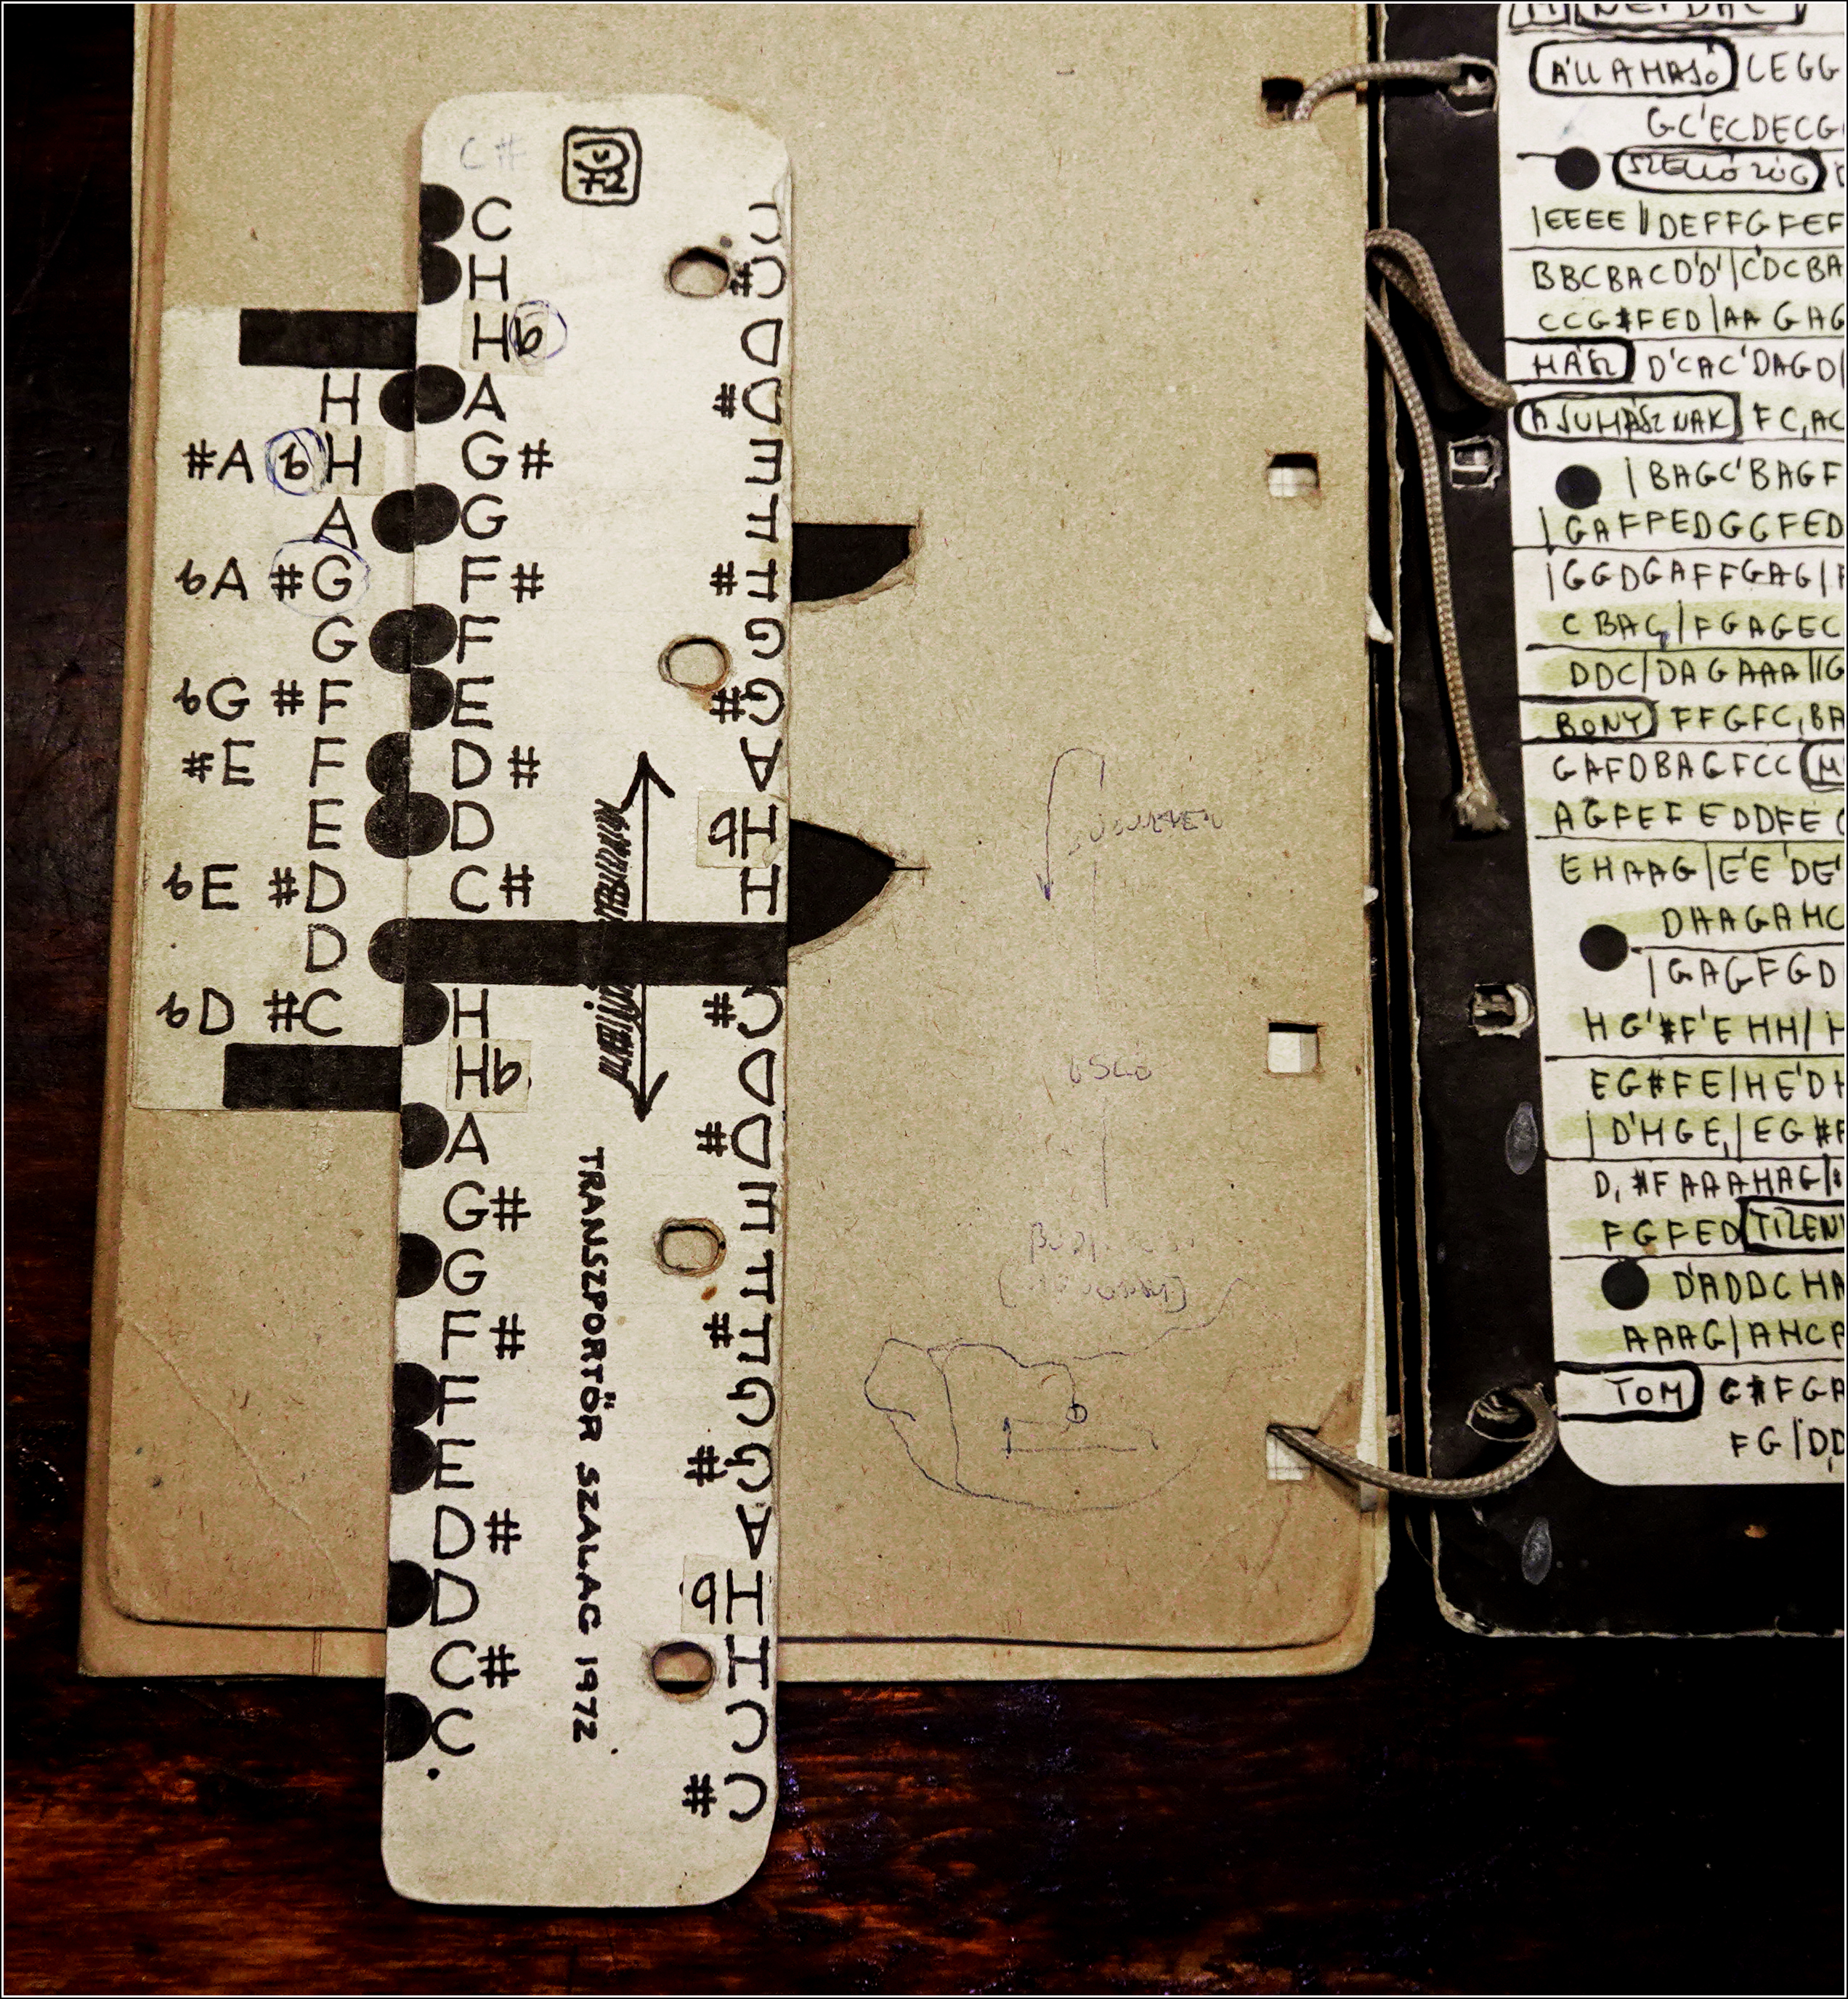 C#
72
C
H
Hb
A
G#
G
F#
F
E
D#
D
C#
H
Hb
A
G#
G
F#
F
E
D#
D
C#
C
H
#A bH
A
bA #G
G
bG #F
#E F
E
bE #D
D
bD #C
C
C#
D
D#
E
F
F#
G
G#
A
Hb
H
C#
D
D#
E
F
F#
G
G#
A
Hb
H
C
C#
TRANSZPORTŐR SZALAG 1972
ÁLLAMAJÓ LEGG
GC'ECDECG
SZELLŐ ZÚG
|EEEE ||DEFFGFEF
BBCBACD'D'|C'DCBA
CCG#FED|AA GAG
HÁZ D'CAC'DAGD|
A JUHÁSZNAK FC,AC
|BAGC'BAGF
|GAFFEDGGFED
|GGDGAFFGAG|F
CBAG|FGAGEC
DDC|DAGAAA||G
BONY FFGFC,BA
GAFDBAGFCC
AGFEFEDDFE
EHAAG|E'E'DE'
DHAGAHC
|GAGFGD
HG'#F'EHH|H
EG#FE|HE'DH
|D'HGE,|EG#F
D,#FAAAHAG|
FGFED TIZEN
D'ADDCHA
AAAG|AHCA
TOM G#FGA
FG|DD